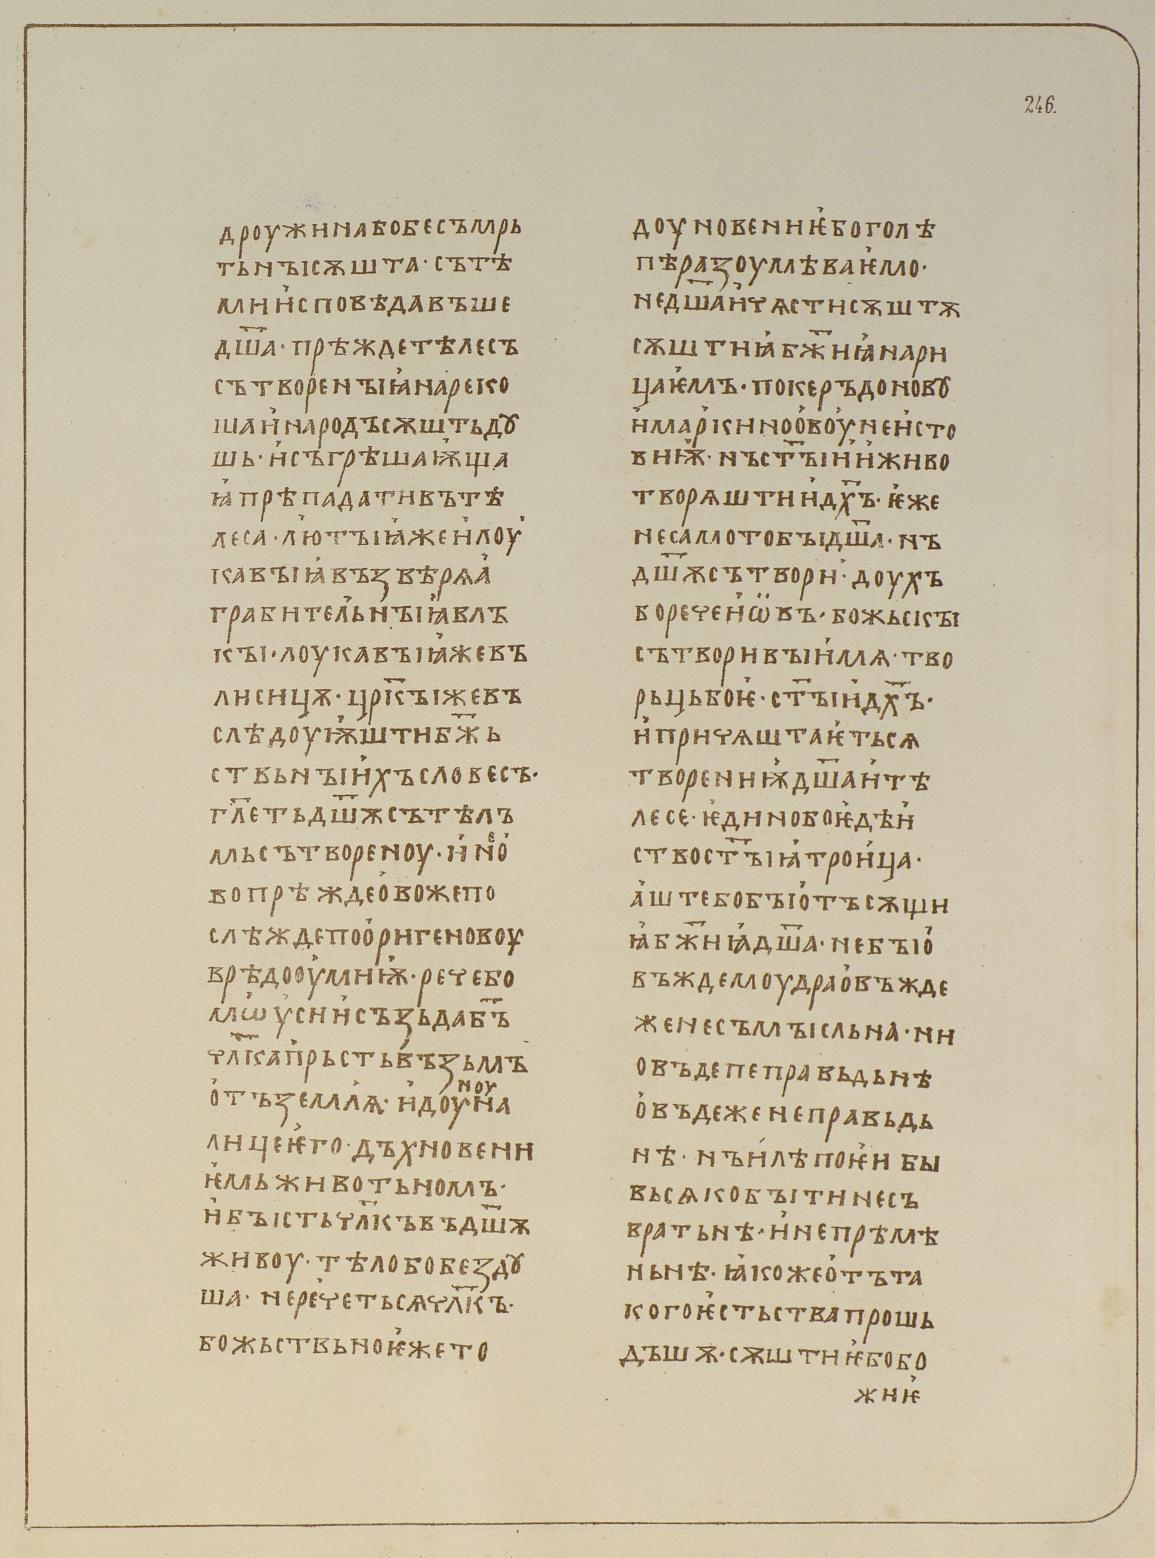 246.
дроужинабобесъмрь
тьнъıсѫшта· сътѣ
мнн҆сповѣдавъше
дш҃а· прѣждетѣлесъ
сътворенъıꙗ҆нареко
шан҆народъсѫштьдꙋ
шь· и҆съгрѣшаѭ҆ща
ꙗ҆прѣпадативътѣ
леса· лю҆тъıꙗ҆жеи҆лоу҆
кавъıꙗ҆въꙁвѣрѧа҆
грабител҆ьнъıꙗ҆влъ
къı· лоукавъıꙗ҆жевъ
лисицѫ· црк҃ъıжевъ
слѣдоуѭ҆штибж҃ь
ствьнъıи҆хъсловесъ·
гл҃етьдш҃ѫсътѣлъ
мьсътвореноу· и҆не҆о҆
вопрѣждео҆вожепо
слѣждепоо҆ригеновоу
врѣдооу҆мниѭ҆· речебо
мѡу҆сии҆съꙁьдаб҃ъ
чл҃кап҆рьстьв҆ъꙁьмъ
о҆тъꙁемл҆ѧ· и҆доуноуна
лицеѥ҆го· дъхновени
ѥ҆мьживотьномъ·
и҆бъıстьчл҃къвъдш҃ѫ
живоу· тѣлобобеꙁдꙋ
ша· нерече҆тьсѧчл҃къ·
божьствьноѥ҆жето
доуновениѥ҆боголѣ
пѣраꙁоумѣваѥ҆мо·
недш҃аи҆чѧстисѫштѫ
сѫштиꙗ҆бж҃иꙗ҆нари
цаѥ҆мъ· покеръдоновꙋ
и҆мар҆кинноо҆воу҆неи҆сто
виѭ҆· нъст҃ъıи҆и҆живо
творѧштии҆дх҃ъ· ѥ҆же
несамотобъıдш҃а· нъ
дш҃ѫсътвори҆· доухъ
боречеи҆ѡ҆въ· божьскъı
сътворивъıи҆мѧ· тво
рьцьбоѥ҆· ст҃ъıи҆дх҃ъ·
и҆причѧштаѥ҆тьсѧ
творениѭ҆дш҃аи҆тѣ
лесе· ѥ҆динобоѥ҆дѣи҆
ствост҃ъıꙗ҆трои҆ца·
а҆штебобъıо҆тъсѫщи
ꙗ҆бж҃иꙗ҆дш҃а· небъıо҆
въждемоудрао҆въжде
женесъмъıсльна· ни
овъдепеправьдьнѣ
о҆въдеженеправьдь
нѣ· нъи҆лѣпоѥ҆и бы
вьсѧкобъıтинесъ
вратьнѣ· и҆непрѣмѣ
ньнѣ· ꙗ҆кожео҆тъта
когоѥ҆стьствапрошь
дъшѫ҆· сѫштиѥ҆бобо
жиѥ҆